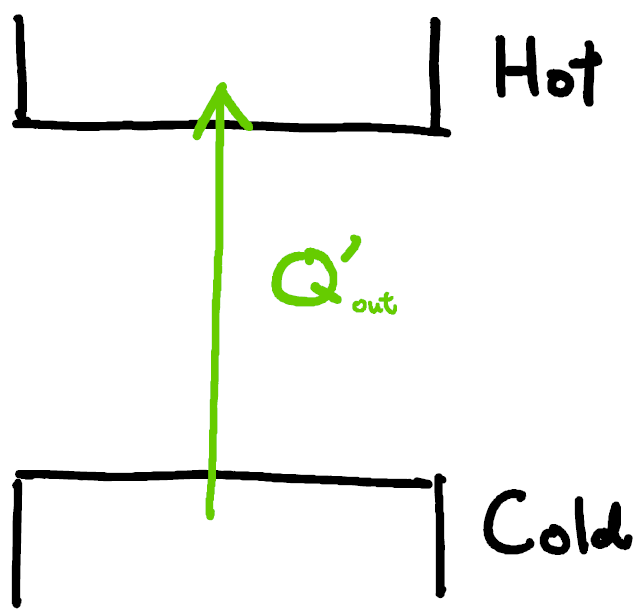 Hot
Q'out
Cold